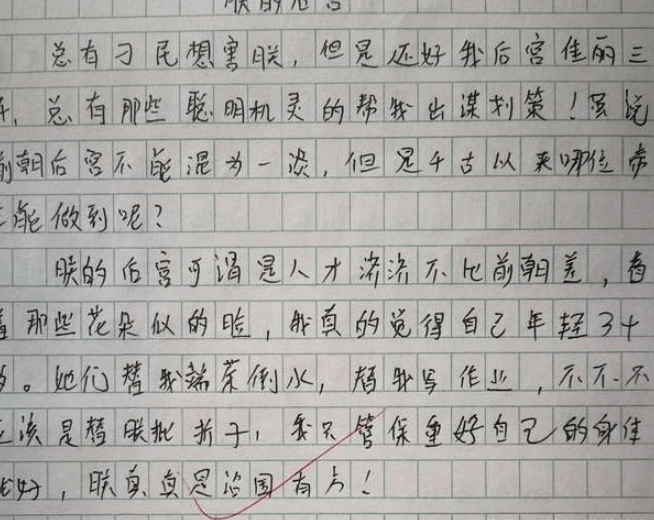 朕的后宫
总有刁民想害朕，但是还好我后宫佳丽三
千，总有那些聪明机灵的帮我出谋划策！虽说
前朝后宫不能混为一谈，但是千古以来哪位帝
王能做到呢？
朕的后宫可谓是人才济济不比前朝差，看
着那些花朵似的脸，我真的觉得自己年轻了十
岁。她们替我端茶倒水，替我写作业，不不不
应该是替朕批折子，我只管保重好自己的身体
就好，朕真真是治国有方！